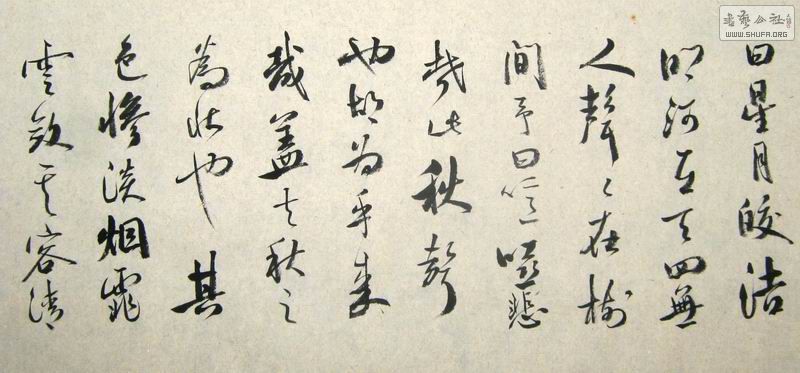 曰星月皎洁
明河在天四無
人聲〻在樹
間予曰噫嘻悲
哉此秋聲
也胡为乎来
哉盖夫秋之
為状也其
色惨淡烟霏
雲斂其容清
書藝公社
WWW.SHUFA.ORG